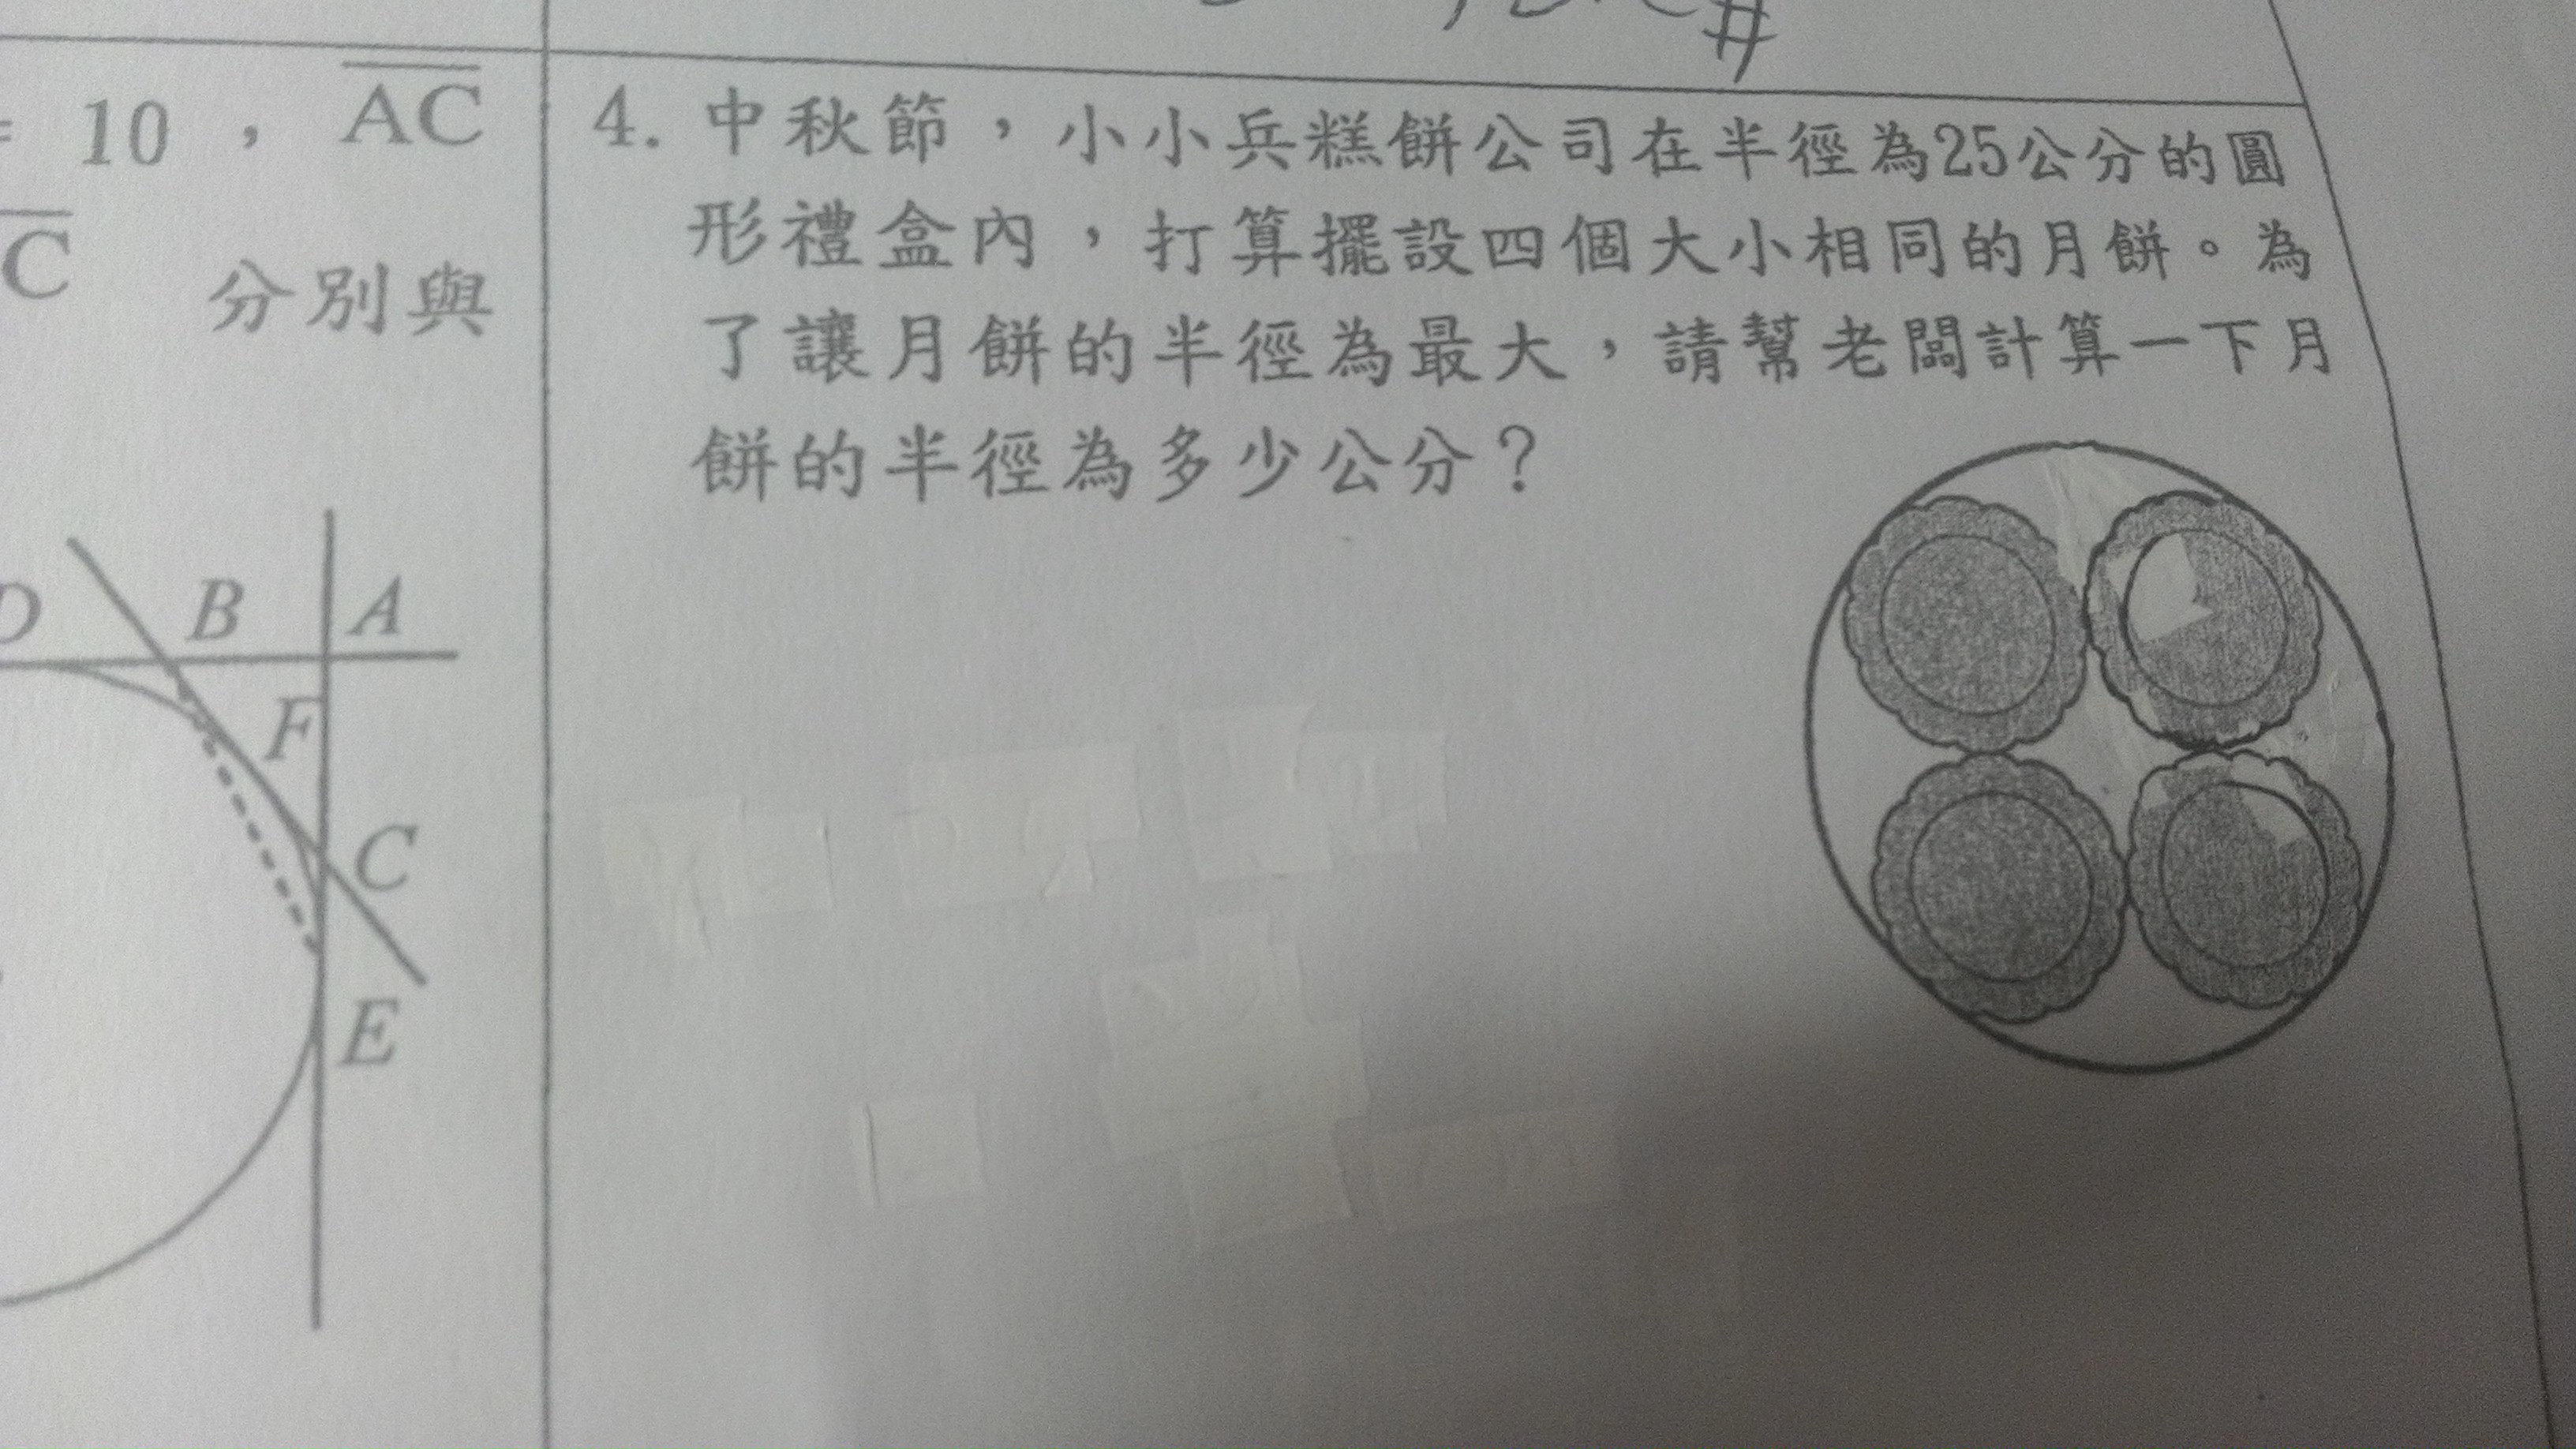 = 10 , AC
C 分別與
D B A
F
C
E
4. 中秋節，小小兵糕餅公司在半徑為25公分的圓
形禮盒內，打算擺設四個大小相同的月餅。為
了讓月餅的半徑為最大，請幫老闆計算一下月
餅的半徑為多少公分？